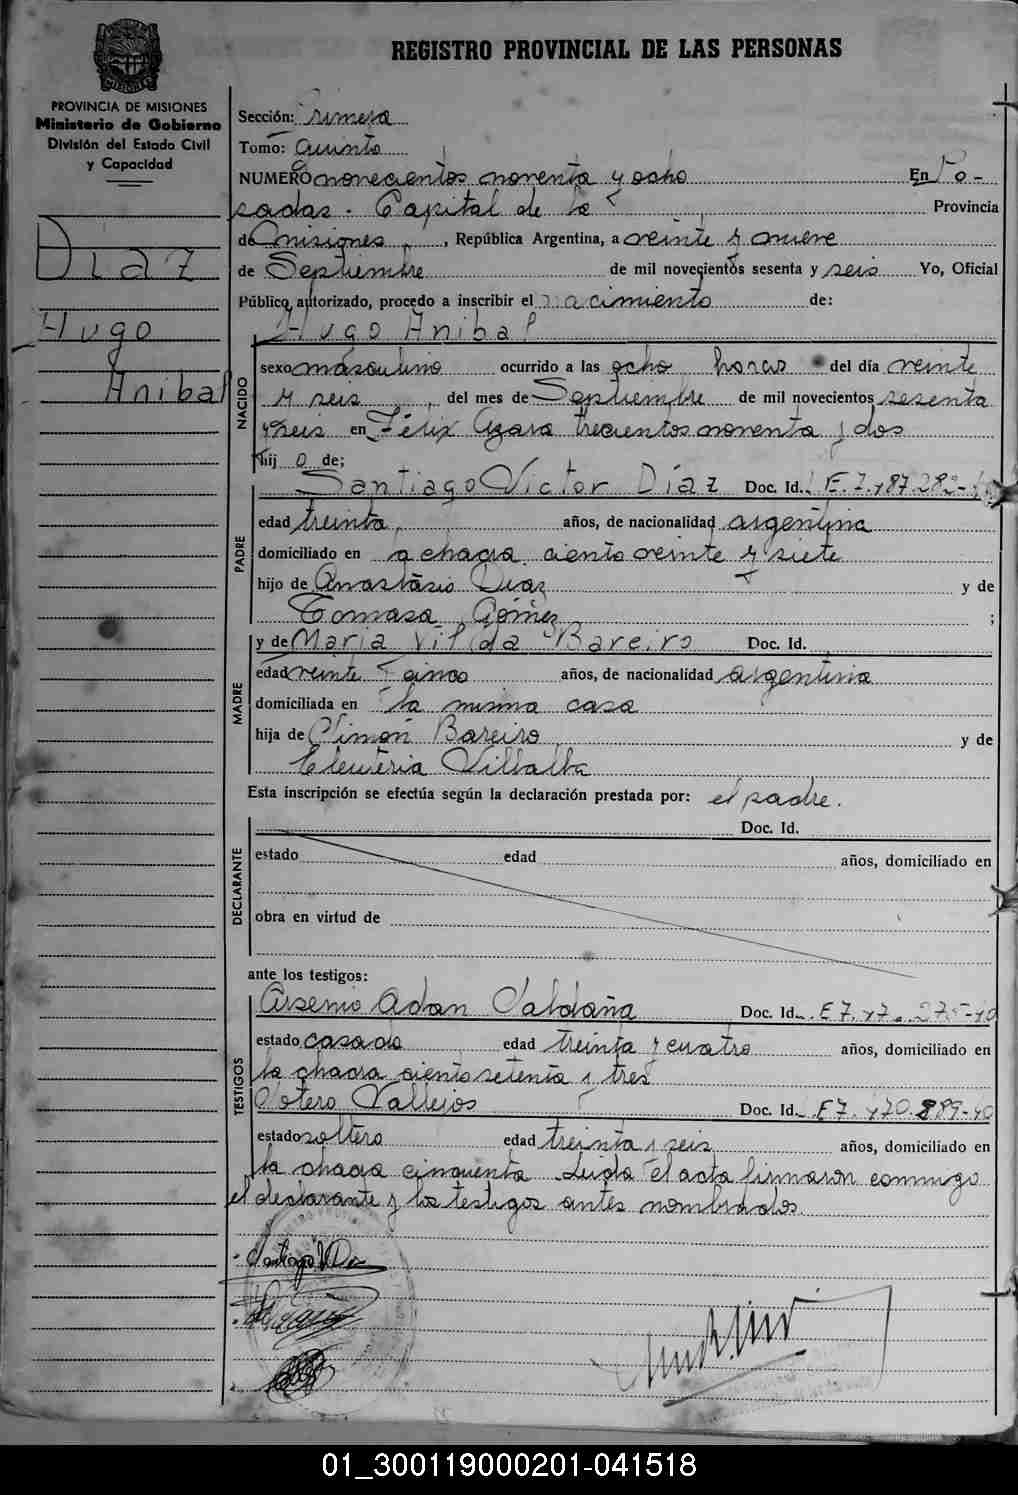 REGISTRO PROVINCIAL DE LAS PERSONAS
PROVINCIA DE MISIONES
Ministerio de Gobierno
División del Estado Civil
y Capacidad
Diaz
Hugo
Anibal
Sección: Primera
Tomo: Quinto
NUMERO novecientos noventa y ocho En Po-
sadas. Capital de la Provincia
de Misiones, República Argentina, a veinte y nueve
de Septiembre de mil novecientos sesenta y seis Yo, Oficial
Público autorizado, procedo a inscribir el nacimiento de:
Hugo Anibal
NACIDO
sexo masculino ocurrido a las ocho horas del día veinte
y seis del mes de Septiembre de mil novecientos sesenta
y seis en Félix Azara trecientos noventa y dos
hijo de;
Santiago Victor Díaz Doc. Id. E. 7.487.282-
PADRE
edad treinta años, de nacionalidad argentina
domiciliado en la chacra ciento veinte y siete
hijo de Anastasio Diaz y de
Tomasa Gómez ;
y de Maria Vilda Bareiro Doc. Id.
MADRE
edad veinte y cinco años, de nacionalidad argentina
domiciliada en la misma casa
hija de Simón Bareiro y de
Eleuteria Villalba
Esta inscripción se efectúa según la declaración prestada por: el padre.
DECLARANTE
Doc. Id.
estado edad años, domiciliado en
obra en virtud de
ante los testigos:
TESTIGOS
Arsenio Adan Saldaña Doc. Id. E 7.47 . 275-40
estado casado edad treinta y cuatro años, domiciliado en
la chacra ciento setenta y tres
Sotero Vallejos Doc. Id. E 7. 470.889-40
estado soltero edad treinta y seis años, domiciliado en
la chacra cincuenta. Leida el acta firmaron conmigo
el declarante y los testigos antes nombrados.
Santiago V Di
01_300119000201-041518